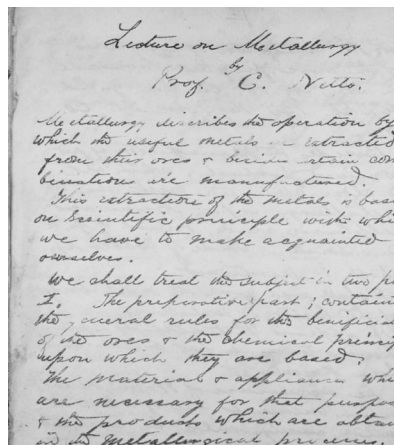 Lecture on Metallurgy
by
Prof. C. Netto.
Metallurgy discribes the operation by
which the useful metals extracted
from their ores & com
bination are manufactured.
This extraction of the metals is base
on Scientific principle with whi
we have to make acquainted
ourselves.
We shall treat the subject in two pa
I. The preparative part; contain
the general rules for the benificia
of the ores & the chemical princi
upon which they are based;
The material & appliances whi
are necessary for that purpos
& the products which are obtai
in the metallurgical process.